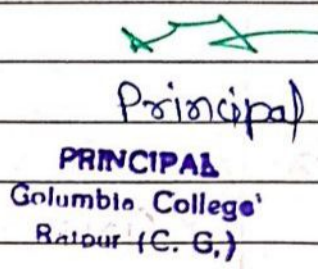 Principal
PRINCIPAL
Columbia College'
Raipur (C. G.)